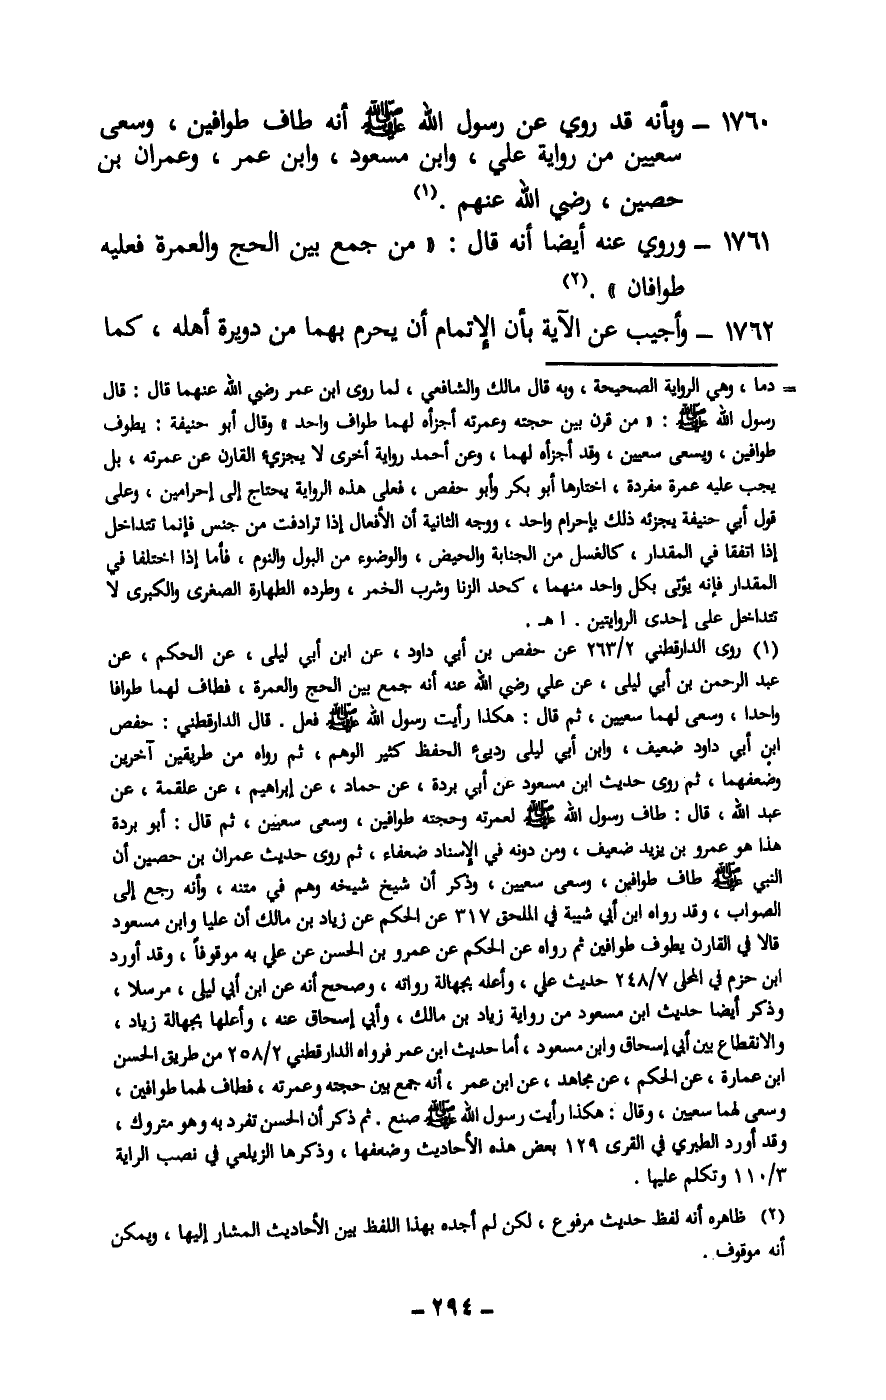 ١٧٦٠ ــ وبأنه قد روي عن رسول الله ﷺ أنه طاف طوافين ، وسعى
سعيين من رواية علي ، وابن مسعود ، وابن عمر ، وعمران بن
حصين ، رضي الله عنهم .(١)
١٧٦١ ــ وروي عنه أيضا أنه قال : « من جمع بين الحج والعمرة فعليه
طوافان » .(٢)
١٧٦٢ ــ وأجيب عن الآية بأن الإتمام أن يحرم بهما من دويرة أهله ، كما
= دما ، وهي الرواية الصحيحة ، وبه قال مالك والشافعي ، لما روى ابن عمر رضي الله عنهما قال : قال
رسول الله ﷺ : « من قرن بين حجته وعمرته أجزأه لهما طواف واحد » وقال أبو حنيفة : يطوف
طوافين ، ويسعى سعيين ، وقد أجزأه لهما ، وعن أحمد رواية أخرى لا يجزيء القارن عن عمرته ، بل
يجب عليه عمرة مفردة ، اختارها أبو بكر وأبو حفص ، فعلى هذه الرواية يحتاج إلى إحرامين ، وعلى
قول أبي حنيفة يجزئه ذلك بإحرام واحد ، ووجه الثانية أن الأفعال إذا ترادفت من جنس فإنما تتداخل
إذا اتفقا في المقدار ، كالغسل من الجنابة والحيض ، والوضوء من البول والنوم ، فأما إذا اختلفا في
المقدار فإنه يؤتى بكل واحد منهما ، كحد الزنا وشرب الخمر ، وطرده الطهارة الصغرى والكبرى لا
تتداخل على إحدى الروايتين . ا هـ .
(١) روى الدارقطني ٢٦٣/٢ عن حفص بن أبي داود ، عن ابن أبي ليلى ، عن الحكم ، عن
عبد الرحمن بن أبي ليلى ، عن علي رضي الله عنه أنه جمع بين الحج والعمرة ، فطاف لهما طوافا
واحدا ، وسعى لهما سعيين ، ثم قال : هكذا رأيت رسول الله ﷺ فعل . قال الدارقطني : حفص
ابن أبي داود ضعيف ، وابن أبي ليلى رديء الحفظ كثير الوهم ، ثم رواه من طريقين آخرين
وضعفهما ، ثم روى حديث ابن مسعود عن أبي بردة ، عن حماد ، عن إبراهيم ، عن علقمة ، عن
عبد الله ، قال : طاف رسول الله ﷺ لعمرته وحجته طوافين ، وسعى سعيين ، ثم قال : أبو بردة
هذا هو عمرو بن يزيد ضعيف ، ومن دونه في الإسناد ضعفاء ، ثم روى حديث عمران بن حصين أن
النبي ﷺ طاف طوافين ، وسعى سعيين ، وذكر أن شيخ شيخه وهم في متنه ، وأنه رجع إلى
الصواب ، وقد رواه ابن أبي شيبة في الملحق ٣١٧ عن الحكم عن زياد بن مالك أن عليا وابن مسعود
قالا في القارن يطوف طوافين ثم رواه عن الحكم عن عمرو بن الحسن عن علي به موقوفاً ، وقد أورد
ابن حزم في المحلى ٢٤٨/٧ حديث علي ، وأعله بجهالة رواته ، وصحح أنه عن ابن أبي ليلى ، مرسلا ،
وذكر أيضا حديث ابن مسعود من رواية زياد بن مالك ، وأبي إسحاق عنه ، وأعلها بجهالة زياد ،
والانقطاع بين أبي إسحاق وابن مسعود ، أما حديث ابن عمر فرواه الدارقطني ٢٥٨/٢ من طريق الحسن
ابن عمارة ، عن الحكم ، عن مجاهد ، عن ابن عمر ، أنه جمع بين حجته وعمرته ، فطاف لهما طوافين ،
وسعى لهما سعيين ، وقال : هكذا رأيت رسول الله ﷺ صنع . ثم ذكر أن الحسن تفرد به وهو متروك ،
وقد أورد الطبري في القرى ١٢٩ بعض هذه الأحاديث وضعفها ، وذكرها الزيلعي في نصب الراية
١١٠/٣ وتكلم عليها .
(٢) ظاهره أنه لفظ حديث مرفوع ، لكن لم أجده بهذا اللفظ بين الأحاديث المشار إليها ، ويمكن
أنه موقوف .
ــ ٢٩٤ ــ